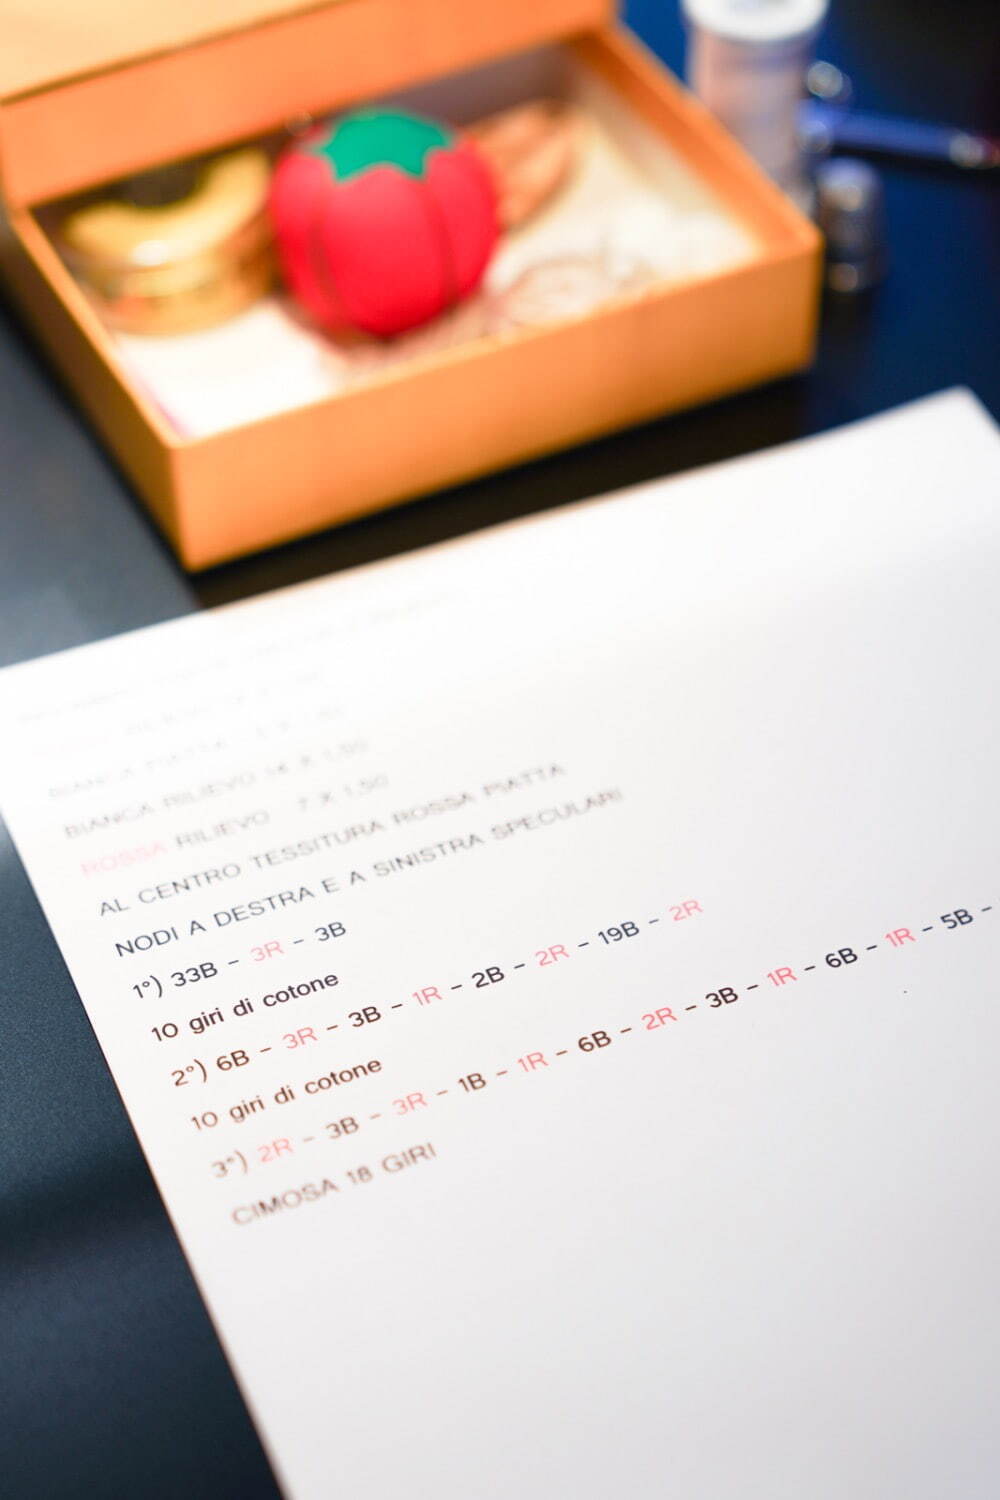 BIANCA PIATTA
BIANCA RILIEVO 14 X 1,50
ROSSA RILIEVO 7 X 1,50
AL CENTRO TESSITURA ROSSA PIATTA
NODI A DESTRA E A SINISTRA SPECULARI
1°) 33B - 3R - 3B
10 giri di cotone
2°) 6B - 3R - 3B - 1R - 2B - 2R - 19B - 2R
10 giri di cotone
3°) 2R - 3B - 3R - 1B - 1R - 6B - 2R - 3B - 1R - 6B - 1R - 5B -
CIMOSA 18 GIRI